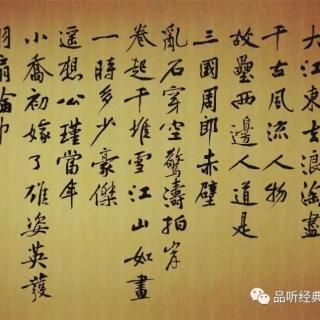 大江東去浪淘盡
千古風流人物
故壘西邊人道是
三國周郎赤壁
亂石穿空驚濤拍岸
卷起千堆雪江山如畫
一時多少豪傑
遥想公瑾當年
小喬初嫁了雄姿英發
羽扇綸巾
品听经典